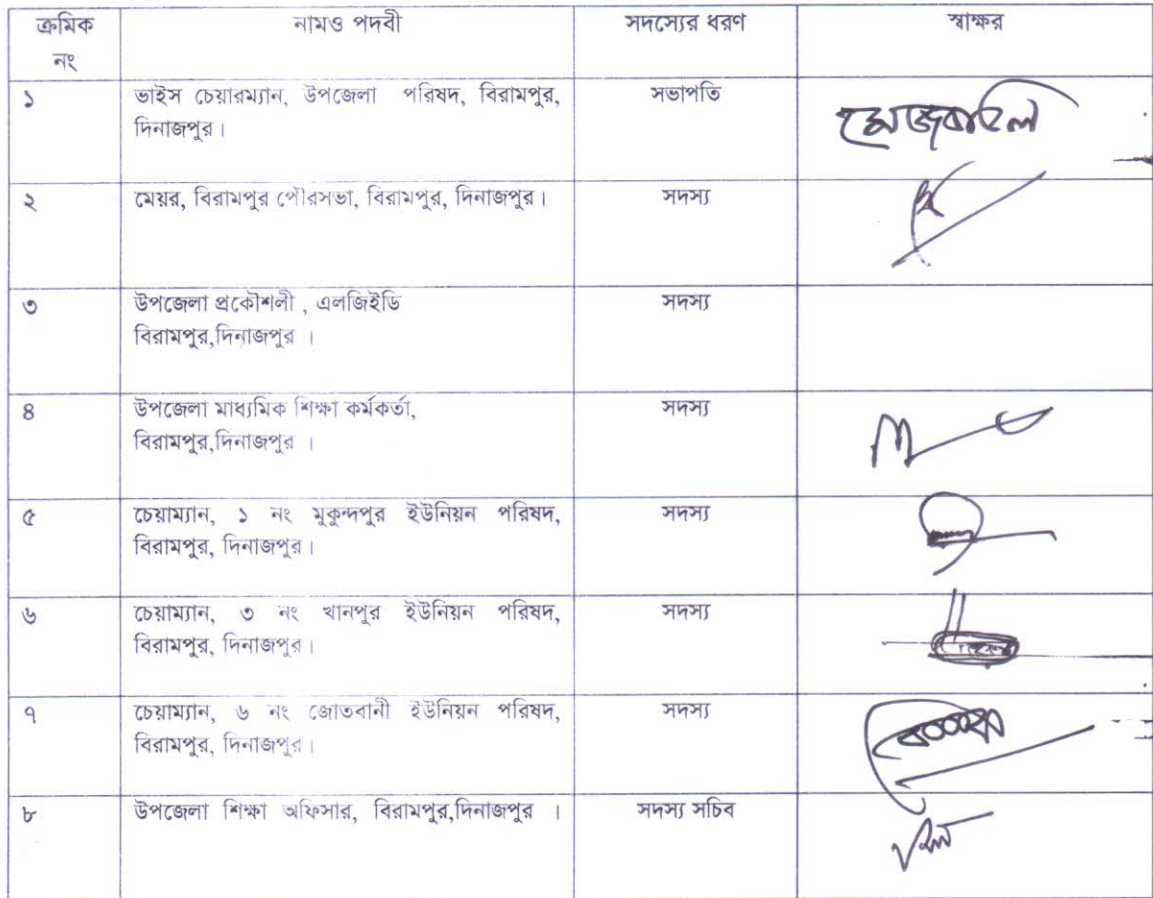 ক্রমিক নামও পদবী সদস্যের ধরণ স্বাক্ষর
নং
১ ভাইস চেয়ারম্যান, উপজেলা পরিষদ, বিরামপুর, সভাপতি
দিনাজপুর।
২ মেয়র, বিরামপুর পৌরসভা, বিরামপুর, দিনাজপুর। সদস্য
৩ উপজেলা প্রকৌশলী , এলজিইডি সদস্য
বিরামপুর,দিনাজপুর ।
৪ উপজেলা মাধ্যমিক শিক্ষা কর্মকর্তা, সদস্য
বিরামপুর,দিনাজপুর ।
৫ চেয়াম্যান, ১ নং মুকুন্দপুর ইউনিয়ন পরিষদ, সদস্য
বিরামপুর, দিনাজপুর।
৬ চেয়াম্যান, ৩ নং খানপুর ইউনিয়ন পরিষদ, সদস্য
বিরামপুর, দিনাজপুর।
৭ চেয়াম্যান, ৬ নং জোতবানী ইউনিয়ন পরিষদ, সদস্য
বিরামপুর, দিনাজপুর।
৮ উপজেলা শিক্ষা অফিসার, বিরামপুর,দিনাজপুর । সদস্য সচিব